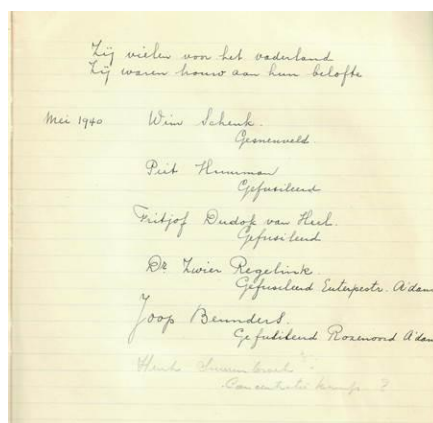 Zij vielen voor het vaderland
Zij waren trouw aan hun belofte
Mei 1940 Wim Schenk.
Gesneuveld.
Piet
Gefusileerd
Fritjof Dudok van Heel.
Gefusileerd
Dr Zwier Regelink.
Gefusileerd Euterpestr. A'dam
Joop Beunders.
Gefusileerd Rozenoord A'dam
Henk
Concentratie kamp ?